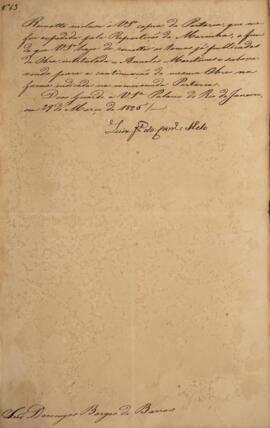 Nº 13
Remetto inclusa a V.Sª copia da Portaria, que me
foi expedida pela Repartição da Marinha, a fim
de que V.Sª haja de remetter os tomos já publicados
da Obra intitulada = Annales Maritimes e subscre
vendo para a continuação da mesma Obra na
forma indicada na mencionada Portaria.
Deos Guarde a V.Sª Palacio do Rio de Janeiro,
em 29 de Março de 1825
Luiz Jº de Carvº e Mello
Snr Domingos Borges de Barros